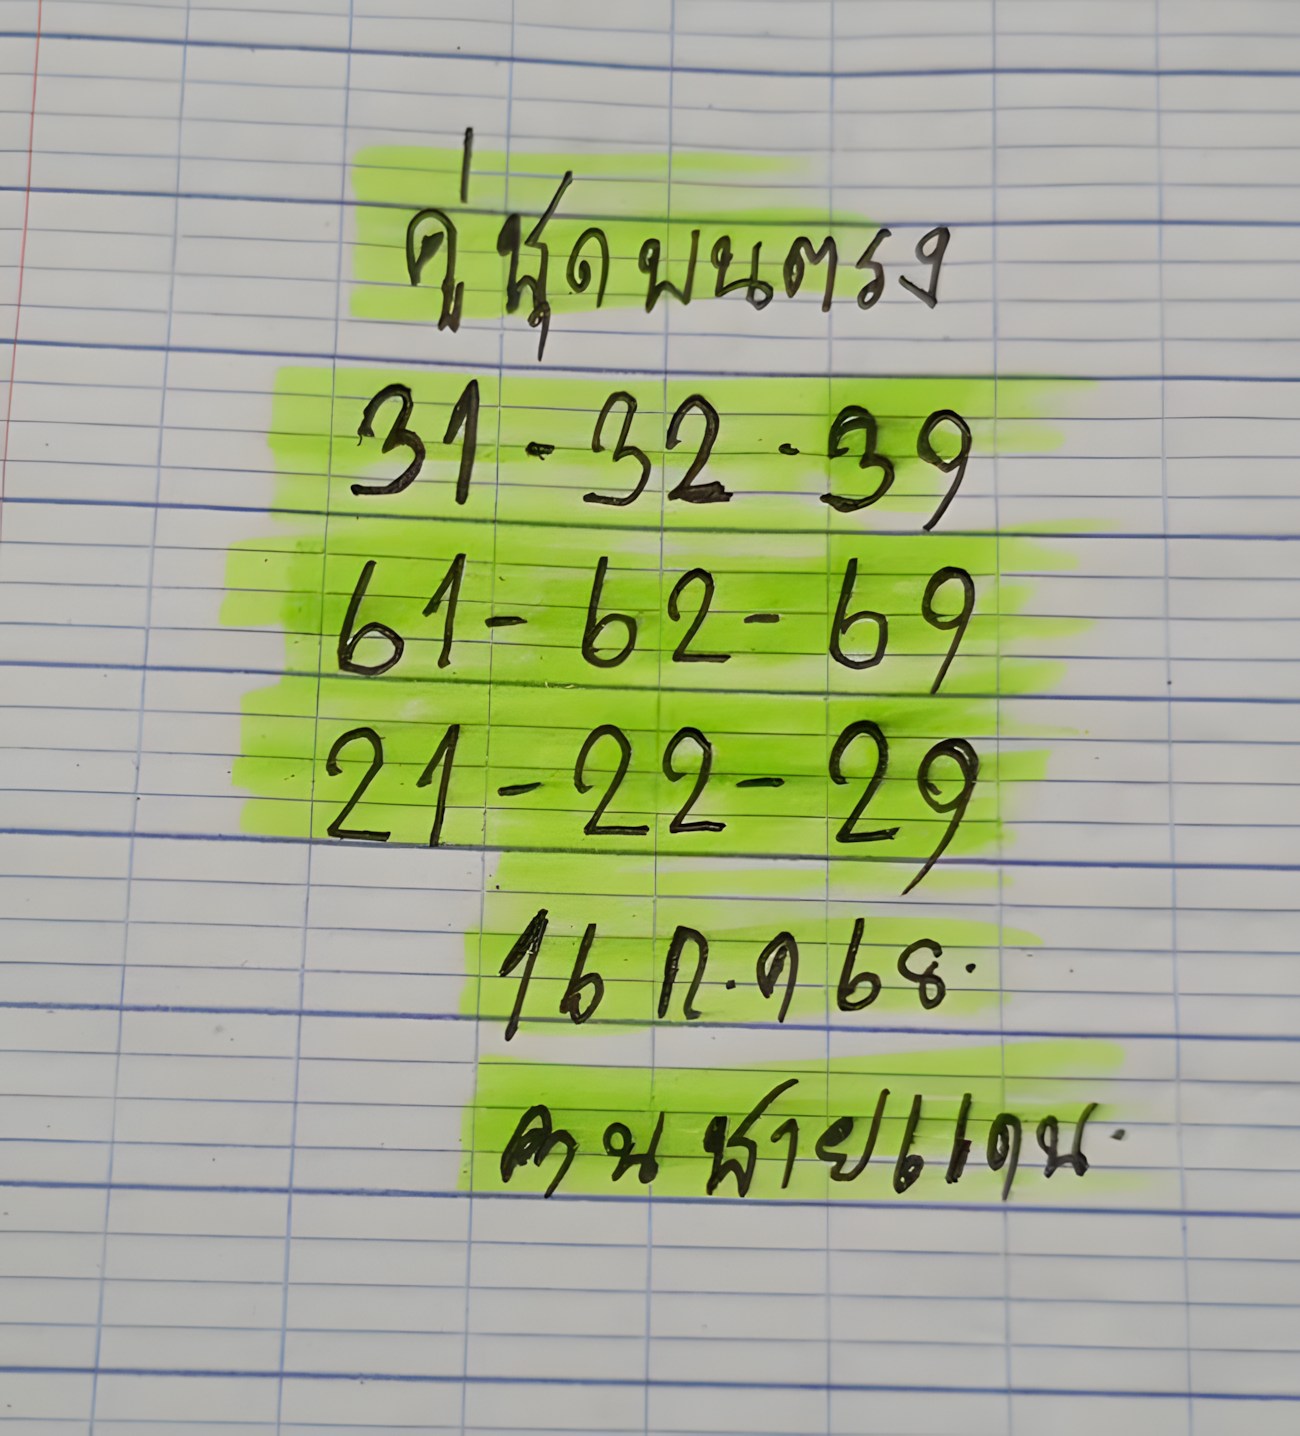 คู่ชุดบนตรง
31-32-39
61-62-69
21-22-29
16 ก.ค 68.
คนชายแดน.